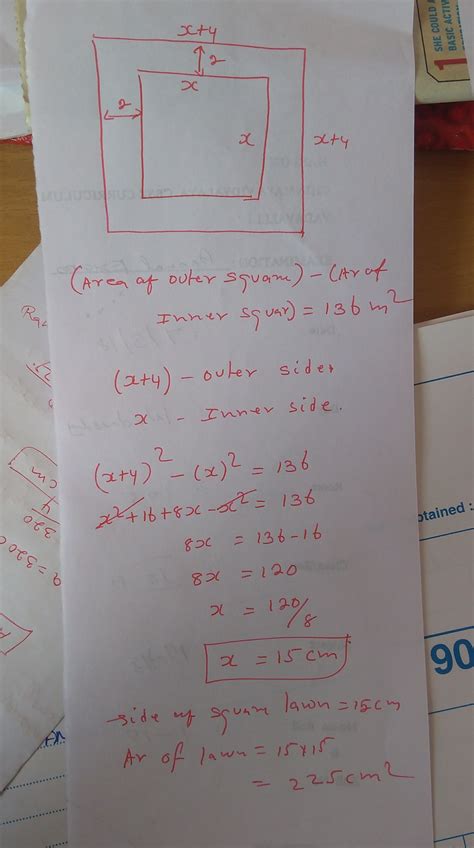 x+4
2
x
2
x
x+4
(Area of outer square) - (Ar of
Inner squar) = 136 m²
(x+4) - outer side
x - Inner side.
(x+4)² - (x)² = 136
x² + 16 + 8x - x² = 136
8x = 136-16
8x = 120
x = 120/8
x = 15 cm
side of square lawn = 15cm
Ar of lawn = 15x15
= 225 cm²
SHE COULD A
BASIC ACTIV
1
cm
320
= 3200
btained :
90